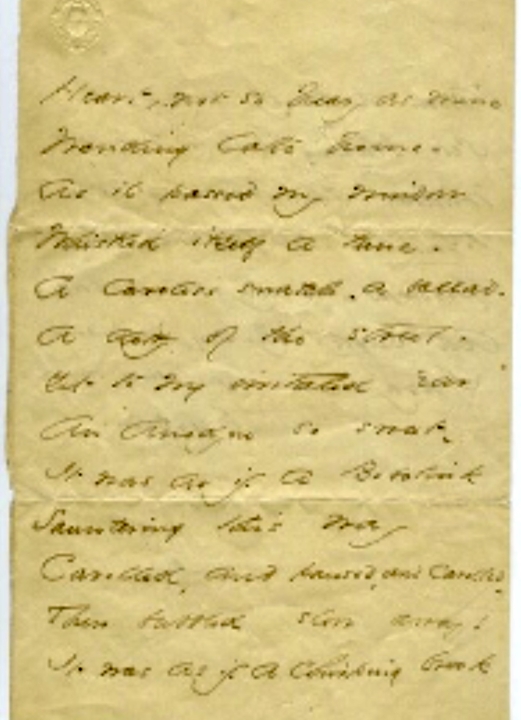 Heart, not so heavy as mine
Wending late home.
As it passed my window
Whistled itself a tune.
A careless snatch. a ballad.
A ditty of the street.
Yet to my irritated Ear
An Anodyne so sweet.
It was as if a Bobolink
Sauntering this way
Carolled, and paused, and Carolled.
Then bubbled slow away!
It was as if a Chirping brook